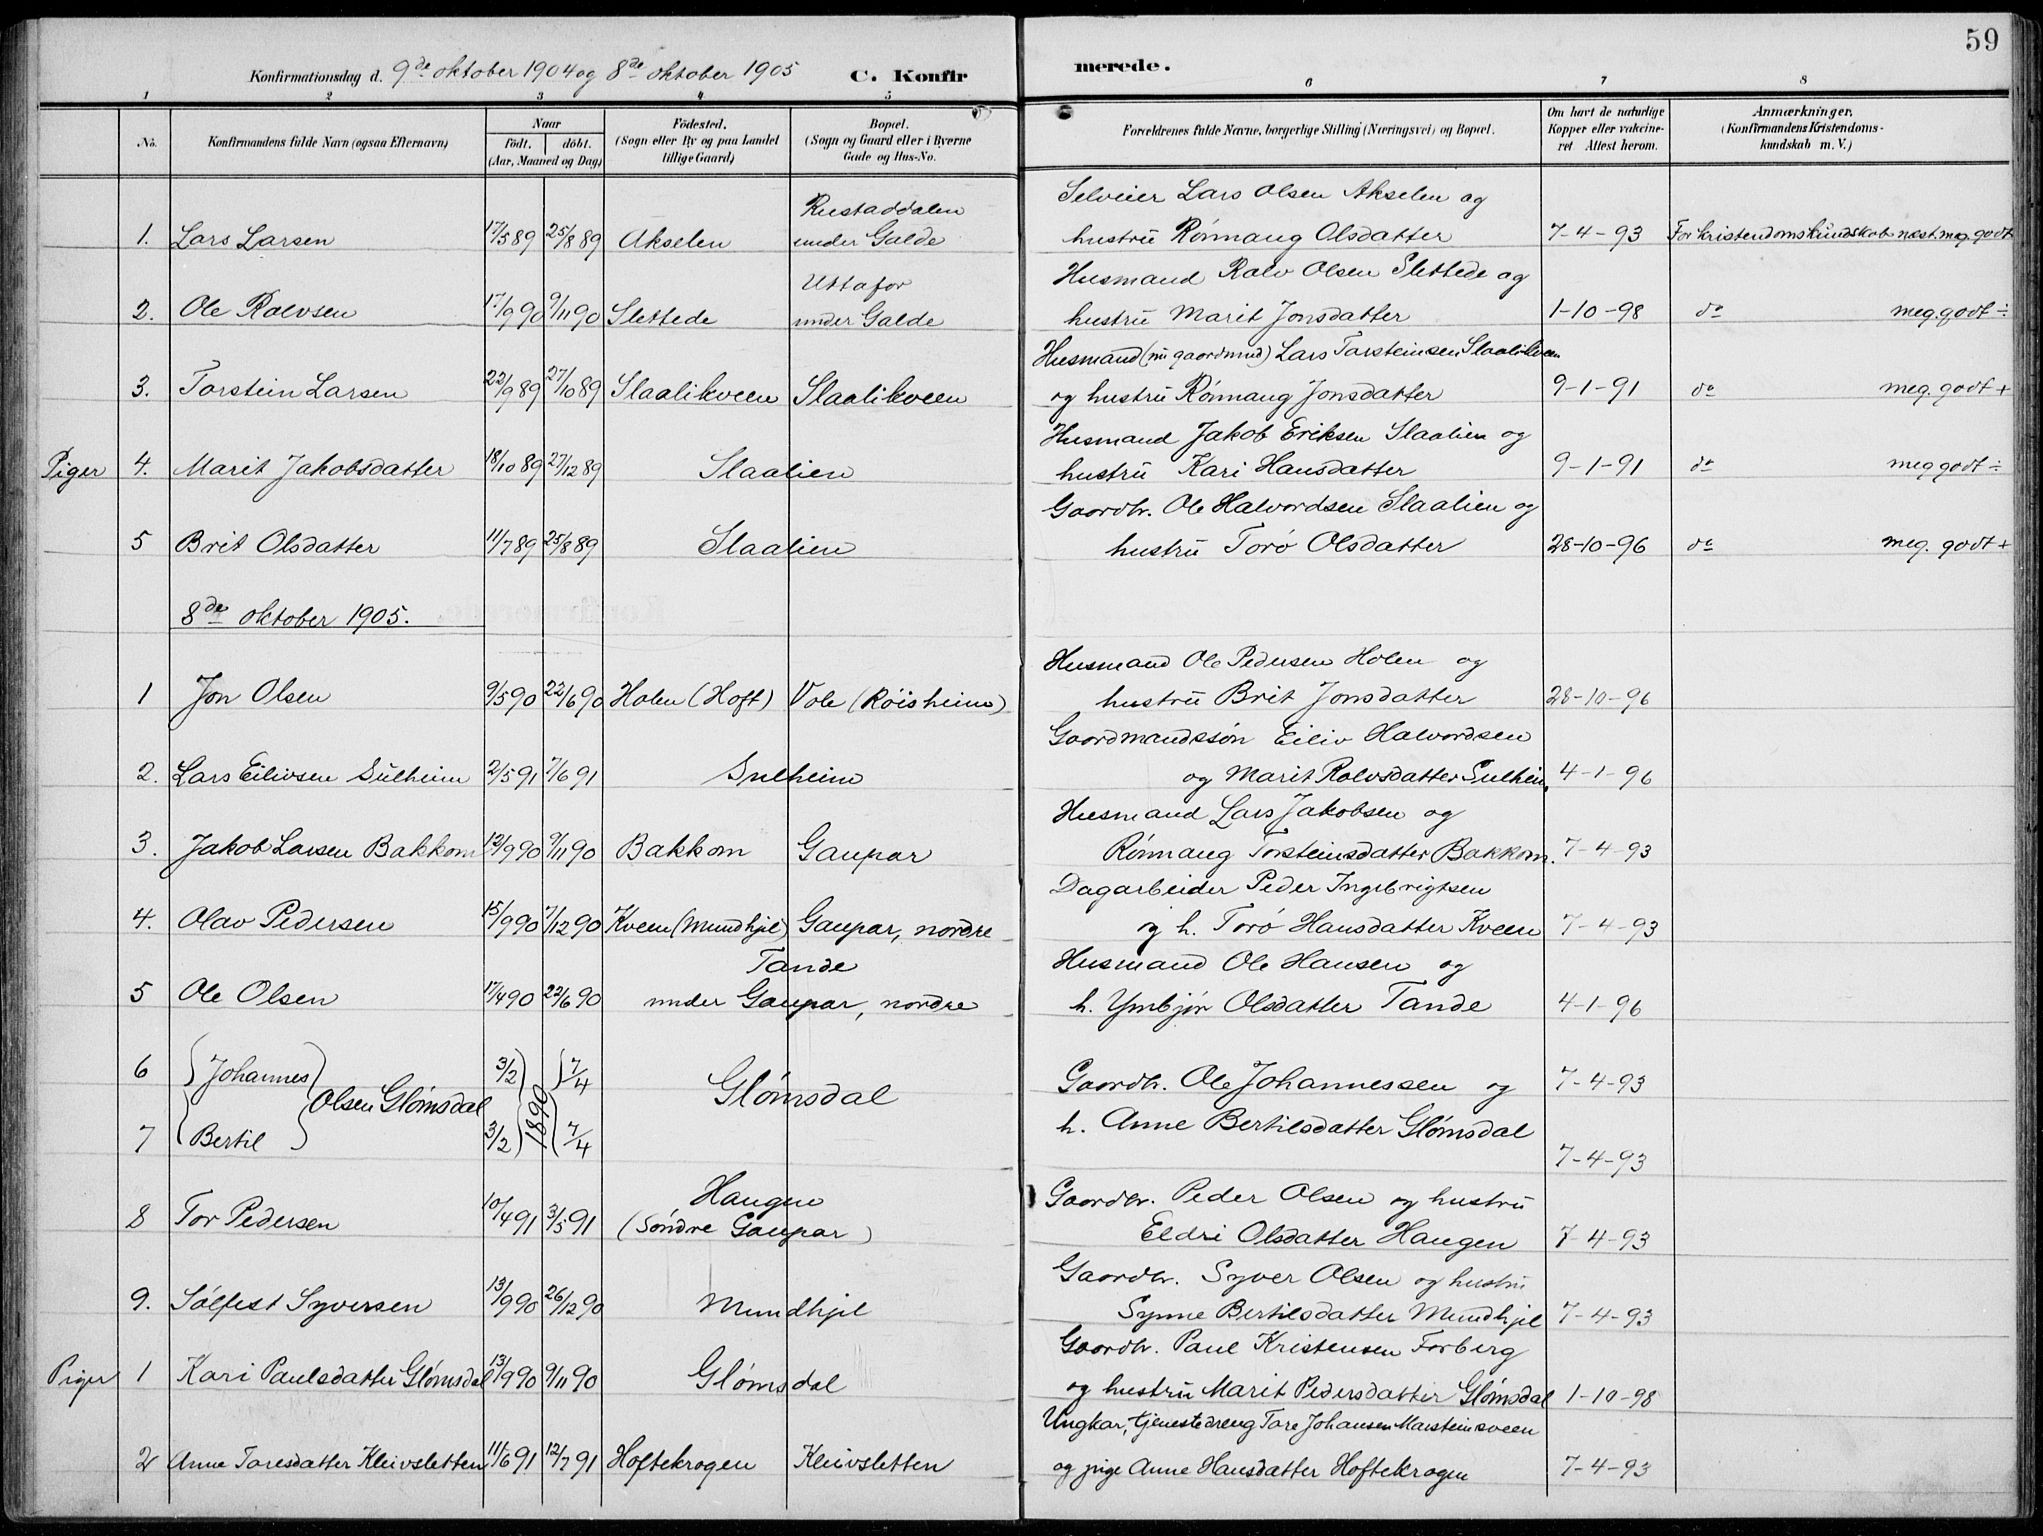 59
Konfirmationsdag d. 9de oktober 1904 og 8de oktober 1905 C. Konfirmerede.
1 2 3 4 5 6 7 8
No. Konfirmandens fulde Navn (ogsaa Efternavn) Naar født. døbt. (Aar, Maaned og Dag) Fødested. (Sogn eller By og paa Landet tillige Gaard) Bopæl. (Sogn og Gaard eller i Byerne Gade og Hus-No. Forældrenes fulde Navne, borgerlige Stilling (Næringsvei) og Bopæl. Om havt de naturlige Kopper eller vakcineret Attest herom. Anmærkninger, (Konfirmandens Kristendomskundskab m. V.)
Rustaddalen Selveier Lars Olsen Akselen og
1. Lars Larsen 17/5 89 25/8 89 Akselen under Galde hustru Rønnaug Olsdatter 7-4-93 For kristendomskundskab næst. meg. godt
Uttafor Husmand Ralv Olsen Slettede og
2. Ole Ralvsen 17/9 90 9/11 90 Slettede under Galde hustru Marit Jonsdatter 1-10-98 do meg. godt ÷
Husmand (nu gaardmd) Lars Torsteinsen Slaalikveen
3. Torstein Larsen 22/9 89 27/10 89 Slaalikveen Slaalikveen og hustru Rønnaug Jonsdatter 9-1-91 do meg. godt +
Husmand Jakob Eriksen Slaalien og
Piger 4. Marit Jakobsdatter 18/10 89 27/12 89 Slaalien hustru Kari Hansdatter 9-1-91 do meg godt ÷
Gaardbr. Ole Halvordsen Slaalien og
5 Brit Olsdatter 11/7 89 25/8 89 Slaalien hustru Torø Olsdatter 28-10-96 do meg. godt +
8de oktober 1905.
Husmand Ole Pedersen Holen og
1 Jon Olsen 9/5 90 22/6 90 Holen (Hoft) Vole (Røisheim) hustru Brit Jonsdatter 28-10-96
Gaardmandssøn Eiliv Halvordsen
2. Lars Eilivsen Sulheim 2/5 91 7/6 91 Sulheim og Marit Ralvsdatter Sulheim 4-1-96
Husmand Lars Jakobsen og
3. Jakob Larsen Bakkom 12/9 90 9/11 90 Bakkom Gaupar Rønnaug Torsteinsdatter Bakkom. 7-4-93
Dagarbeider Peder Ingebrigtsen
4. Olav Pedersen 15/9 90 7/12 90 Kveen (Mundhjel) Gaupar, nordre og h. Torø Hansdatter Kveen 7-4-93
Tande Husmand Ole Hansen og
5 Ole Olsen 17/4 90 22/6 90 under Gaupar, nordre h. Ymbjør Olsdatter Tande 4-1-96
6 Johannes 3/2 7/4 Gaardbr. Ole Johannessen og 7-4-93
Olsen Glømsdal 1890 Glømsdal
7 Bertil 3/2 7/4 h. Anne Bertilsdatter Glømsdal
7-4-93
Haugen Gaardbr. Peder Olsen og hustru
8 Tor Pedersen 10/4 91 3/5 91 (Søndre Gaupar) Eldri Olsdatter Haugen 7-4-93
Gaardbr. Syver Olsen og hustru
9. Sølfest Syversen 13/9 90 26/12 90 Mundhjel Synne Bertilsdatter Mundhjel 7-4-93
Gaardbr. Paul Kristensen Forberg
Piger 1 Kari Paulsdatter Glømsdal 13/9 90 9/11 90 Glømsdal og hustru Marit Pedersdatter Glømsdal 1-10-98
Ungkar, tjenestedreng Tore Johansen Marsteinsveen
2 Anne Toresdatter Kleivsletten 11/6 91 12/7 91 Hoftekrogen Kleivsletten og pige Anne Hansdatter Hoftekrogen 7-4-93